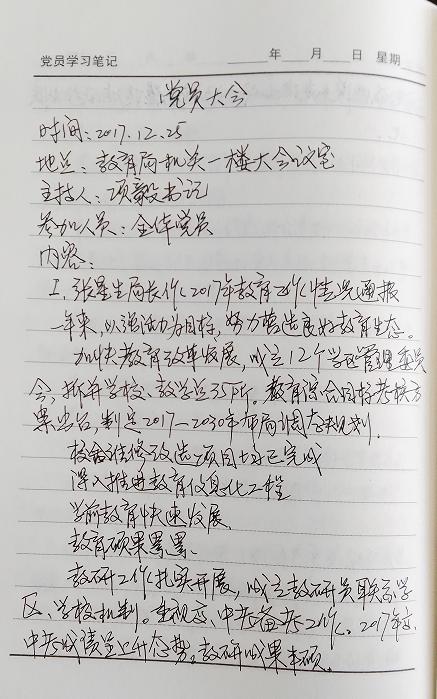 党员学习笔记 年 月 日 星期
党员大会
时间:2017.12.25
地点:教育局机关一楼大会议室
主持人:项毅书记
参加人员:全体党员
内容:
1、张星生局长作《2017年教育工作》情况通报
一年来,以强活力为目标,努力营造良好教育生态。
加快教育改革发展,成立12个学区管理委员
会,拆并学校、教学点35所。教育综合目标考核方
案出台,制定2017—2030年布局调查规划。
校舍维修改造项目均已完成
深入推进教育信息化工程
学前教育快速发展。
教育硕果累累。
教研工作扎实开展,成立教研员联系学
区、学校机制。重视高、中考备考工作。2017年高、
中考成绩呈上升态势。教研成果丰硕。